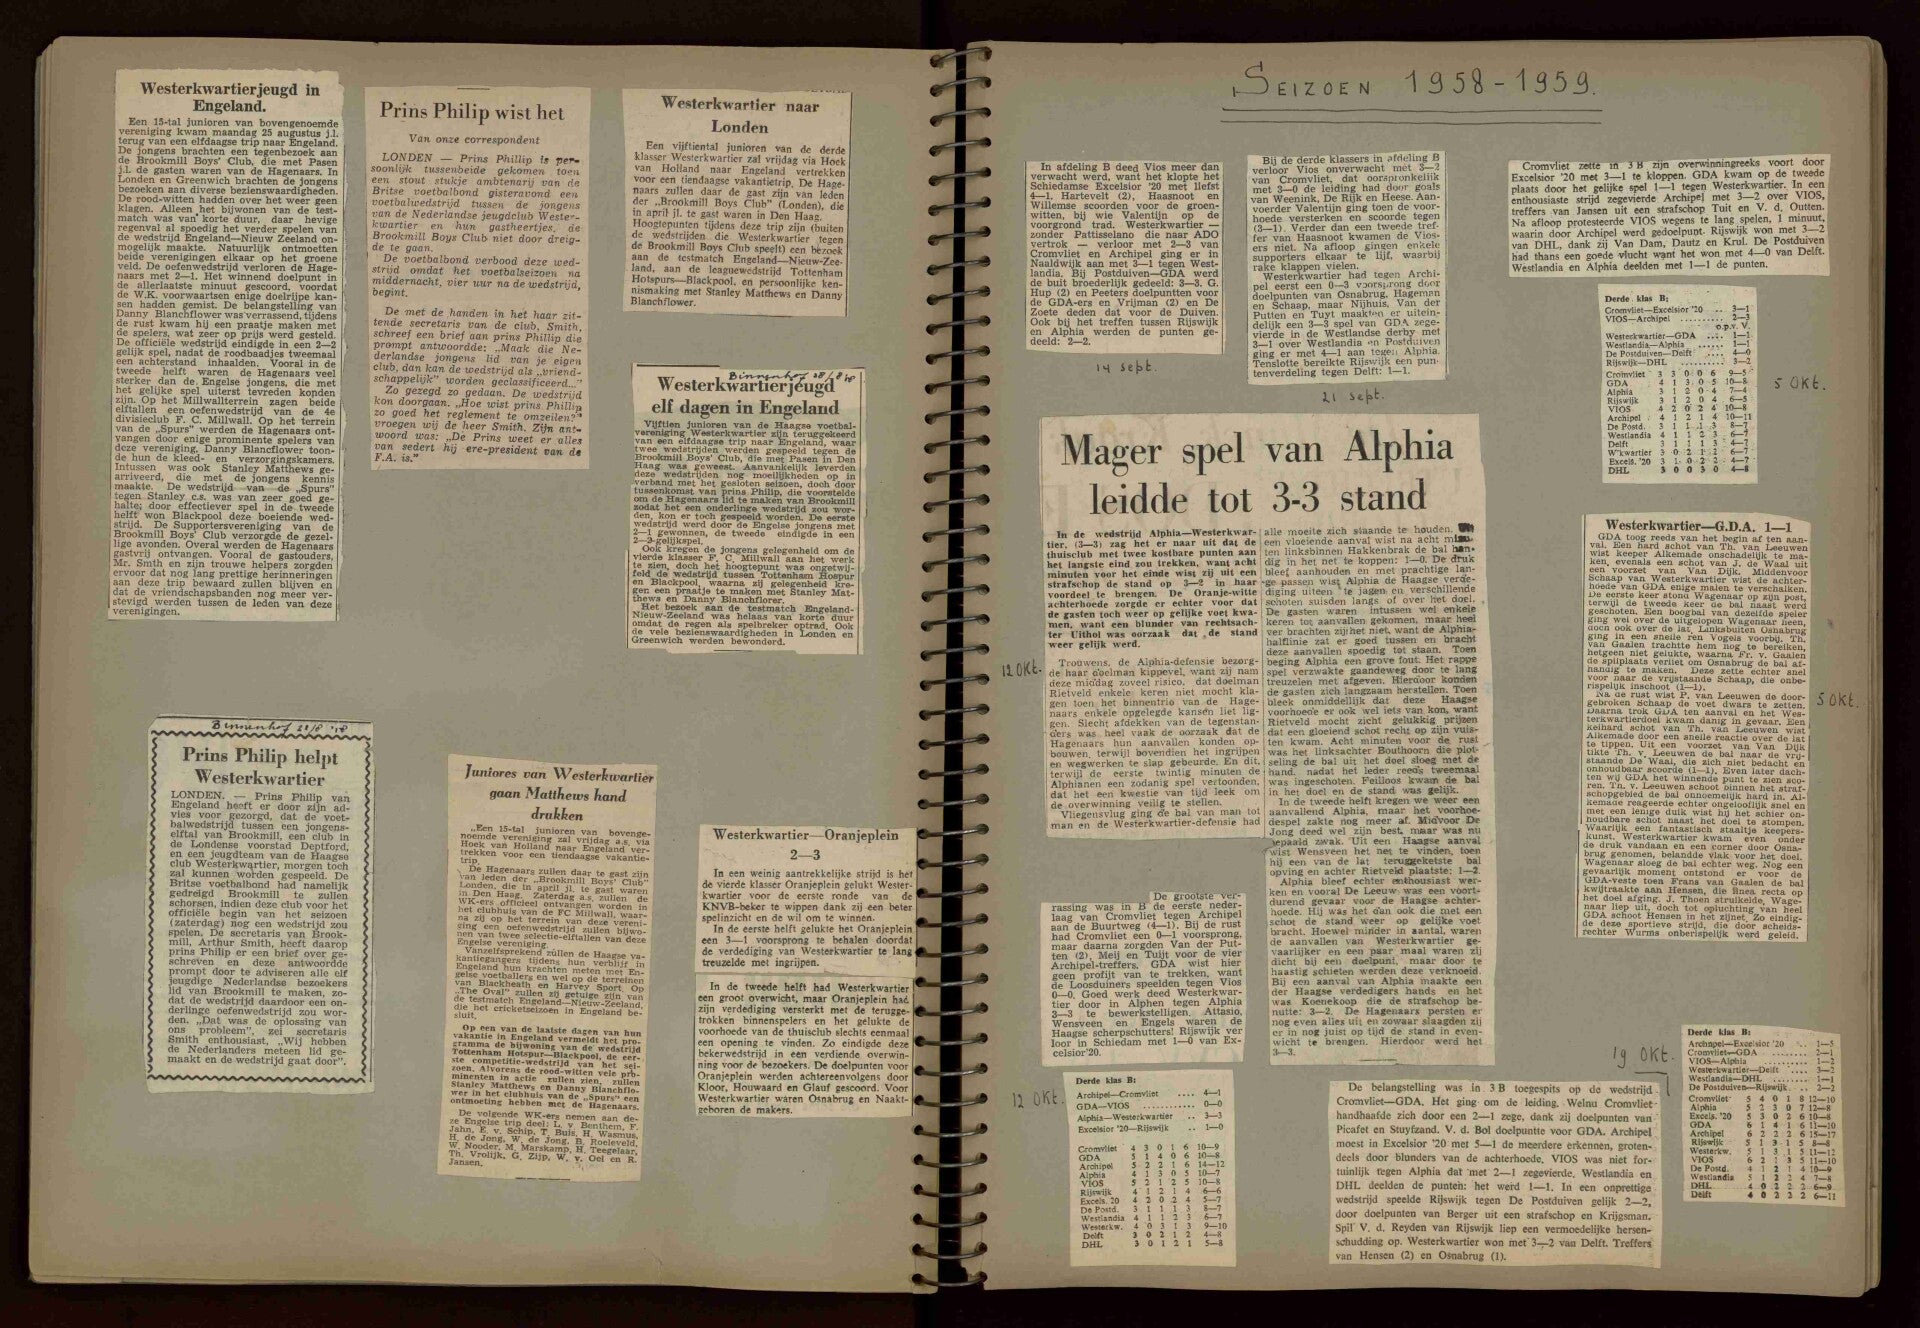 Westerkwartierjeugd in
Engeland.
Een 15-tal junioren van bovengenoemde
vereniging kwam maandag 25 augustus j.l.
terug van een elfdaagse trip naar Engeland.
De jongens brachten een tegenbezoek aan
de Brookmill Boys' Club, die met Pasen
j.l. de gasten waren van de Hagenaars. In
Londen en Greenwich brachten de jongens
bezoeken aan diverse bezienswaardigheden.
De rood-witten hadden over het weer geen
klagen. Alleen het bijwonen van de test-
match was van korte duur, daar hevige
regenval al spoedig het verder spelen van
de wedstrijd Engeland—Nieuw Zeeland on-
mogelijk maakte. Natuurlijk ontmoetten
beide verenigingen elkaar op het groene
veld. De oefenwedstrijd verloren de Hage-
naars met 2—1. Het winnend doelpunt in
de allerlaatste minuut gescoord, voordat
de W.K. voorwaartsen enige doelrijpe kan-
sen hadden gemist. De belangstelling van
Danny Blanchflower was verrassend, tijdens
de rust kwam hij een praatje maken met
de spelers, wat zeer op prijs werd gesteld.
De officiële wedstrijd eindigde in een 2—2
gelijk spel, nadat de roodbaadjes tweemaal
een achterstand inhaalden. Vooral in de
tweede helft waren de Hagenaars veel
sterker dan de Engelse jongens, die met
het gelijke spel uiterst tevreden konden
zijn. Op het Millwallterrein zagen beide
elftallen een oefenwedstrijd van de 4e
divisieclub F. C. Millwall. Op het terrein
van de „Spurs” werden de Hagenaars ont-
vangen door enige prominente spelers van
deze vereniging. Danny Blancflower toon-
de hun de kleed- en verzorgingskamers.
Intussen was ook Stanley Matthews ge-
arriveerd, die met de jongens kennis
maakte. De wedstrijd van de „Spurs”
tegen Stanley c.s. was van zeer goed ge-
halte; door effectiever spel in de tweede
helft won Blackpool deze boeiende wed-
strijd. De Supportersvereniging van de
Brookmill Boys' Club verzorgde de gezel-
lige avonden. Overal werden de Hagenaars
gastvrij ontvangen. Vooral de gastouders,
Mr. Smth en zijn trouwe helpers zorgden
ervoor dat nog lang prettige herinneringen
aan deze trip bewaard zullen blijven en
dat de vriendschapsbanden nog meer ver-
stevigd werden tussen de leden van deze
verenigingen.
Prins Philip wist het
Van onze correspondent
LONDEN — Prins Phillip is per-
soonlijk tussenbeide gekomen toen
een stout stukje ambtenarij van de
Britse voetbalbond gisteravond een
voetbalwedstrijd tussen de jongens
van de Nederlandse jeugdclub Wester-
kwartier en hun gastheertjes, de
Brookmill Boys Club niet door dreig-
de te gaan.
De voetbalbond verbood deze wed-
strijd omdat het voetbalseizoen na
middernacht, vier uur na de wedstrijd,
begint.
De met de handen in het haar zit-
tende secretaris van de club, Smith,
schreef een brief aan prins Phillip die
prompt antwoordde: „Maak die Ne-
derlandse jongens lid van je eigen
club, dan kan de wedstrijd als „vriend-
schappelijk” worden geclassificeerd...”
Zo gezegd zo gedaan. De wedstrijd
kon doorgaan. „Hoe wist prins Phillip
zo goed het reglement te omzeilen?”
vroegen wij de heer Smith. Zijn ant-
woord was: „De Prins weet er alles
van sedert hij ere-president van de
F.A. is.”
Westerkwartier naar
Londen
Een vijftiental junioren van de derde
klasser Westerkwartier zal vrijdag via Hoek
van Holland naar Engeland vertrekken
voor een tiendaagse vakantietrip. De Hage-
naars zullen daar de gast zijn van leden
der „Brookmill Boys Club” (Londen), die
in april jl. te gast waren in Den Haag.
Hoogtepunten tijdens deze trip zijn (buiten
de wedstrijden die Westerkwartier tegen
de Brookmill Boys Club speelt) een bezoek
aan de testmatch Engeland—Nieuw-Zee-
land, aan de leaguewedstrijd Tottenham
Hotspurs—Blackpool, en persoonlijke ken-
nismaking met Stanley Matthews en Danny
Blanchflower.
Binnenhof 28/8 '58
Westerkwartierjeugd
elf dagen in Engeland
Vijftien junioren van de Haagse voetbal-
vereniging Westerkwartier zijn teruggekeerd
van een elfdaagse trip naar Engeland, waar
twee wedstrijden werden gespeeld tegen de
Brookmill Boys' Club, die met Pasen in Den
Haag was geweest. Aanvankelijk leverden
deze wedstrijden nog moeilijkheden op in
verband met het gesloten seizoen, doch door
tussenkomst van prins Philip, die voorstelde
om de Hagenaars lid te maken van Brookmill
zodat het een onderlinge wedstrijd zou wor-
den, kon er toch gespeeld worden. De eerste
wedstrijd werd door de Engelse jongens met
2—1 gewonnen, de tweede eindigde in een
2—2-gelijkspel.
Ook kregen de jongens gelegenheid om de
vierde klasser F. C. Millwall aan het werk
te zien, doch het hoogtepunt was ongetwij-
feld de wedstrijd tussen Tottenham Hospur
en Blackpool, waarna zij gelegenheid kre-
gen een praatje te maken met Stanley Mat-
thews en Danny Blanchflorer.
Het bezoek aan de testmatch Engeland-
Nieuw-Zeeland was helaas van korte duur
omdat de regen als spelbreker optrad. Ook
de vele bezienswaardigheden in Londen en
Greenwich werden bewonderd.
Binnenhof 22/8 '58
Prins Philip helpt
Westerkwartier
LONDEN. — Prins Philip van
Engeland heeft er door zijn ad-
vies voor gezorgd, dat de voet-
balwedstrijd tussen een jongens-
elftal van Brookmill, een club in
de Londense voorstad Deptford,
en een jeugdteam van de Haagse
club Westerkwartier, morgen toch
zal kunnen worden gespeeld. De
Britse voetbalbond had namelijk
gedreigd Brookmill te zullen
schorsen, indien deze club voor het
officiële begin van het seizoen
(zaterdag) nog een wedstrijd zou
spelen. De secretaris van Brook-
mill, Arthur Smith, heeft daarop
prins Philip er een brief over ge-
schreven en deze antwoordde
prompt door te adviseren alle elf
jeugdige Nederlandse bezoekers
lid van Brookmill te maken, zo-
dat de wedstrijd daardoor een on-
derlinge oefenwedstrijd zou wor-
den. „Dat was de oplossing van
ons probleem”, zei secretaris
Smith enthousiast, „Wij hebben
de Nederlanders meteen lid ge-
maakt en de wedstrijd gaat door”.
Juniores van Westerkwartier
gaan Matthews hand
drukken
„Een 15-tal junioren van bovenge-
noemde vereniging zal vrijdag a.s. via
Hoek van Holland naar Engeland ver-
trekken voor een tiendaagse vakantie-
trip.
De Hagenaars zullen daar te gast zijn
van leden der „Brookmill Boys' Club”
Londen, die in april jl. te gast waren
in Den Haag. Zaterdag a.s. zullen de
WK-ers officieel ontvangen worden in
het clubhuis van de FC Millwall, waar-
na zij op het terrein van deze vereni-
ging een oefenwedstrijd zullen bijwo-
nen van twee selectie-elftallen van deze
Engelse vereniging.
Vanzelfsprekend zullen de Haagse va-
kantiegangers tijdens hun verblijf in
Engeland hun krachten meten met En-
gelse voetballers en wel op de terreinen
van Blackheath en Harvey Sport. Op
„The Oval” zullen zij getuige zijn van
de testmatch Engeland—Nieuw-Zeeland,
die het cricketseizoen in Engeland be-
sluit.
Op een van de laatste dagen van hun
vakantie in Engeland vermeldt het pro-
gramma de bijwoning van de wedstrijd
Tottenham Hotspur—Blackpool, de eer-
ste competitie-wedstrijd van het sei-
zoen. Alvorens de rood-witten vele pro-
minenten in actie zullen zien, zullen
Stanley Matthews en Danny Blanchflo-
wer in het clubhuis van de „Spurs” een
ontmoeting hebben met de Hagenaars.
De volgende WK-ers nemen aan de-
ze Engelse trip deel: L. v. Benthem, F.
Jahn, E. v. Schip, T. Buis, H. Wasmus,
H. de Jong, W. de Jong, B. Roeleveld,
W. Nooder, M. Marskamp, H. Teegelaar,
Th. Vrolijk, G. Zijp, W. v. Oel en R.
Jansen.
Westerkwartier—Oranjeplein
2—3
In een weinig aantrekkelijke strijd is het
de vierde klasser Oranjeplein gelukt Wester-
kwartier voor de eerste ronde van de
KNVB-beker te wippen dank zij een beter
spelinzicht en de wil om te winnen.
In de eerste helft gelukte het Oranjeplein
een 3—1 voorsprong te behalen doordat
de verdediging van Westerkwartier te lang
treuzelde met ingrijpen.
In de tweede helft had Westerkwartier
een groot overwicht, maar Oranjeplein had
zijn verdediging versterkt met de terugge-
trokken binnenspelers en het gelukte de
voorhoede van de thuisclub slechts eenmaal
een opening te vinden. Zo eindigde deze
bekerwedstrijd in een verdiende overwin-
ning voor de bezoekers. De doelpunten voor
Oranjeplein werden achtereenvolgens door
Kloor, Houwaard en Glauf gescoord. Voor
Westerkwartier waren Osnabrug en Naakt-
geboren de makers.
SEIZOEN 1958-1959.
In afdeling B deed Vios meer dan
verwacht werd, want het klopte het
Schiedamse Excelsior '20 met liefst
4—1. Hartevelt (2), Haasnoot en
Willemse scoorden voor de groen-
witten, bij wie Valentijn op de
voorgrond trad. Westerkwartier —
zonder Pattisselano die naar ADO
vertrok — verloor met 2—3 van
Cromvliet en Archipel ging er in
Naaldwijk aan met 3—1 tegen West-
landia. Bij Postduiven—GDA werd
de buit broederlijk gedeeld: 3—3. G.
Hup (2) en Peeters doelpunten voor
de GDA-ers en Vrijman (2) en De
Zoete deden dat voor de Duiven.
Ook bij het treffen tussen Rijswijk
en Alphia werden de punten ge-
deeld: 2—2.
14 sept.
Bij de derde klassers in afdeling B
verloor Vios onverwacht met 3—2
van Cromvliet, dat oorspronkelijk
met 3—0 de leiding had door goals
van Weenink, De Rijk en Heese. Aan-
voerder Valentijn ging toen de voor-
hoede versterken en scoorde tegen
(3—1). Verder dan een tweede tref-
fer van Haasnoot kwamen de Vios-
ers niet. Na afloop gingen enkele
supporters elkaar te lijf, waarbij
rake klappen vielen.
Westerkwartier had tegen Archi-
pel eerst een 0—3 voorsprong door
doelpunten van Osnabrug, Hageman
en Schaap, maar Nijhuis, Van der
Putten en Tuyt maakten er uitein-
delijk een 3—3 spel van GDA zege-
vierde in de Westlandse derby met
3—1 over Westlandia en Postduiven
ging er met 4—1 aan tegen Alphia.
Tenslotte bereikte Rijswijk een pun-
tenverdeling tegen Delft: 1—1.
21 sept.
Cromvliet zette in 3 B zijn overwinningreeks voort door
Excelsior '20 met 3—1 te kloppen. GDA kwam op de tweede
plaats door het gelijke spel 1—1 tegen Westerkwartier. In een
enthousiaste strijd zegevierde Archipel met 3—2 over VIOS,
treffers van Jansen uit een strafschop Tuit en V. d. Outten.
Na afloop protesteerde VIOS wegens te lang spelen, 1 minuut,
waarin door Archipel werd gedoelpunt. Rijswijk won met 3—2
van DHL, dank zij Van Dam, Dautz en Krul. De Postduiven
had thans een goede vlucht want het won met 4—0 van Delft.
Westlandia en Alphia deelden met 1—1 de punten.
Derde klas B:
Cromvliet—Excelsior '20 .. 3—1
VIOS—Archipel ........ 2—3
o.p.v. V.
Westerkwartier—GDA ... 1—1
Westlandia—Alphia ..... 1—1
De Postduiven—Delft .... 4—0
Rijswijk—DHL ........ 3—2
Cromvliet 3 3 0 0 6 9—5
GDA 4 1 3 0 5 10—8
Alphia 3 1 2 0 4 7—4
Rijswijk 3 1 2 0 4 6—5
VIOS 4 2 0 2 4 10—8
Archipel 4 1 2 1 4 10—11
De Postd. 3 1 1 1 3 8—7
Westlandia 4 1 1 2 3 6—7
Delft 3 1 1 1 3 4—7
W'kwartier 3 0 2 1 2 6—7
Excels. '20 3 1 0 2 2 4—7
DHL 3 0 0 3 0 4—8
5 Okt.
Mager spel van Alphia
leidde tot 3-3 stand
In de wedstrijd Alphia—Westerkwar-
tier, (3—3) zag het er naar uit dat de
thuisclub met twee kostbare punten aan
het langste eind zou trekken, want acht
minuten voor het einde wist zij uit een
strafschop de stand op 3—2 in haar
voordeel te brengen. De Oranje-witte
achterhoede zorgde er echter voor dat
de gasten toch weer op gelijke voet kwa-
men, want een blunder van rechtsach-
ter Uithol was oorzaak dat de stand
weer gelijk werd.
12 Okt.
Trouwens, de Alphia-defensie bezorg-
de haar doelman kippevel, want zij nam
deze middag zoveel risico, dat doelman
Rietveld enkele keren niet mocht kla-
gen toen het binnentrio van de Hage-
naars enkele opgelegde kansen liet lig-
gen. Slecht afdekken van de tegenstan-
ders was heel vaak de oorzaak dat de
Hagenaars hun aanvallen konden op-
bouwen, terwijl bovendien het ingrijpen
en wegwerken te slap gebeurde. En dit,
terwijl de eerste twintig minuten de
Alphianen een zodanig spel vertoonden,
dat het een kwestie van tijd leek om
de overwinning veilig te stellen.
Vliegensvlug ging de bal van man tot
man en de Westerkwartier-defensie had
alle moeite zich staande te houden.
een vloeiende aanval wist na acht minu-
ten linksbinnen Hakkenbrak de bal han-
dig in het net te koppen: 1—0. De druk
bleef aanhouden en met prachtige lan-
ge passen wist Alphia de Haagse verde-
diging uiteen te jagen en verschillende
schoten suisden langs of over het doel.
De gasten waren intussen wel enkele
keren tot aanvallen gekomen, maar heel
ver brachten zij het niet, want de Alphia-
halflinie zat er goed tussen en bracht
deze aanvallen spoedig tot staan. Toen
beging Alphia een grove fout. Het rappe
spel verzwakte gaandeweg door te lang
treuzelen met afgeven. Hierdoor konden
de gasten zich langzaam herstellen. Toen
bleek onmiddellijk dat deze Haagse
voorhoede er ook wel iets van kon, want
Rietveld mocht zicht gelukkig prijzen
dat een gloeiend schot recht op zijn vuis-
ten kwam. Acht minuten voor de rust
was het linksachter Bouthoorn die plot-
seling de bal uit het doel sloeg met de
hand, nadat het leder reeds tweemaal
was ingeschoten. Feilloos kwam de bal
in het doel en de stand was gelijk.
In de tweede helft kregen we weer een
aanvallend Alphia, maar het voorhoe-
despel zakte nog meer af. Midvoor De
Jong deed wel zijn best, maar was nu
bepaald zwak. Uit een Haagse aanval
wist Wensveen het net te vinden, toen
hij een van de lat teruggeketste bal
opving en achter Rietveld plaatste: 1—2.
Alphia bleef echter enthousiast wer-
ken en vooral De Leeuw was een voort-
durend gevaar voor de Haagse achter-
hoede. Hij was het dan ook die met een
schot de stand weer op gelijke voet
bracht. Hoewel minder in aantal, waren
de aanvallen van Westerkwartier ge-
vaarlijker en een paar maal waren zij
dicht bij een doelpunt, maar door te
haastig schieten werden deze verknoeid.
Bij een aanval van Alphia maakte een
der Haagse verdedigers hands en het
was Koenekoop die de strafschop be-
nutte: 3—2. De Hagenaars persten er
nog even alles uit en zowaar slaagden zij
er in nog juist op tijd de stand in even-
wicht te brengen. Hierdoor werd het
3—3.
Westerkwartier—G.D.A. 1—1
GDA toog reeds van het begin af ten aan-
val. Een hard schot van Th. van Leeuwen
wist keeper Alkemade onschadelijk te ma-
ken, evenals een schot van J. de Waal uit
een voorzet van Van Dijk. Middenvoor
Schaap van Westerkwartier wist de achter-
hoede van GDA enige malen te verschalken.
De eerste keer stond Wagenaar op zijn post,
terwijl de tweede keer de bal naast werd
geschoten. Een boogbal van dezelfde speler
ging wel over de uitgelopen Wagenaar heen,
doch ook over de lat. Linksbuiten Osnabrug
ging in een snelle ren Vogels voorbij. Th.
van Gaalen trachtte hem nog te bereiken,
hetgeen niet gelukte, waarna Fr. v. Gaalen
de spilplaats verliet om Osnabrug de bal af-
handig te maken. Deze zette echter snel
voor naar de vrijstaande Schaap, die onbe-
rispelijk inschoot (1—1).
Na de rust wist P. van Leeuwen de door-
gebroken Schaap de voet dwars te zetten.
Daarna trok GDA ten aanval en het Wes-
terkwartierdoel kwam danig in gevaar. Een
keihard schot van Th. van Leeuwen wist
Alkemade door een snelle reactie over de lat
te tippen. Uit een voorzet van Van Dijk
tikte Th. v. Leeuwen de bal naar de vrij-
staande De Waal, die zich niet bedacht en
onhoudbaar scoorde (1—1). Even later dach-
ten wij GDA het winnende punt te zien sco-
ren. Th. v. Leeuwen schoot binnen het straf-
schopgebied de bal onnoemelijk hard in. Al-
kemade reageerde echter ongelooflijk snel en
met een lenige duik wist hij het schier on-
houdbare schot naast het doel te stompen.
Waarlijk een fantastisch staaltje keepers-
kunst. Westerkwartier kwam even onder
de druk vandaan en een corner door Osna-
brug genomen, belandde vlak voor het doel.
Wagenaar sloeg de bal echter weg. Nog een
gevaarlijk moment ontstond er voor de
GDA-veste toen Frans van Gaalen de bal
kwijtraakte aan Hensen, die linea recta op
het doel afging. J. Thoen struikelde, Wage-
naar liep uit, doch tot opluchting van heel
GDA schoot Hensen in het zijnet. Zo eindig-
de deze sportieve strijd, die door scheids-
rechter Wurms onberispelijk werd geleid.
5 Okt.
De grootste ver-
rassing was in B de eerste neder-
laag van Cromvliet tegen Archipel
aan de Buurtweg (4—1). Bij de rust
had Cromvliet een 0—1 voorsprong,
maar daarna zorgden Van der Put-
ten (2), Meij en Tuijt voor de vier
Archipel-treffers. GDA wist hier
geen profijt van te trekken, want
de Loosduiners speelden tegen Vios
0—0. Goed werk deed Westerkwar-
tier door in Alphen tegen Alphia
3—3 te bewerkstelligen. Attasio,
Wensveen en Engels waren de
Haagse scherpschutters! Rijswijk ver-
loor in Schiedam met 1—0 van Ex-
celsior'20.
12 Okt.
Derde klas B:
Archipel—Cromvliet .... 4—1
GDA—VIOS ........... 0—0
Alphia—Westerkwartier .. 3—3
Excelsior '20—Rijswijk .. 1—0
Cromvliet 4 3 0 1 6 10—9
GDA 5 1 4 0 6 10—8
Archipel 5 2 2 1 6 14—12
Alphia 4 1 3 0 5 10—7
VIOS 5 2 1 2 5 10—8
Rijswijk 4 1 2 1 4 6—6
Excels. 20 4 2 0 2 4 5—7
De Postd. 3 1 1 1 3 8—7
Westlandia 4 1 1 2 3 6—7
Westerkw. 4 0 3 1 3 9—10
Delft 3 0 2 1 2 4—8
DHL 3 0 1 2 1 5—8
19 Okt.
De belangstelling was in 3 B toegespits op de wedstrijd
Cromvliet—GDA. Het ging om de leiding. Welnu Cromvliet
handhaafde zich door een 2—1 zege, dank zij doelpunten van
Picafet en Stuyfzand. V. d. Bol doelpuntte voor GDA. Archipel
moest in Excelsior '20 met 5—1 de meerdere erkennen, groten-
deels door blunders van de achterhoede. VIOS was niet for-
tuinlijk tegen Alphia dat met 2—1 zegevierde. Westlandia en
DHL deelden de punten: het werd 1—1. In een onprettige
wedstrijd speelde Rijswijk tegen De Postduiven gelijk 2—2,
door doelpunten van Berger uit een strafschop en Krijgsman.
Spil V. d. Reyden van Rijswijk liep een vermoedelijke hersen-
schudding op. Westerkwartier won met 3—2 van Delft. Treffers
van Hensen (2) en Osnabrug (1).
Derde klas B:
Archipel—Excelsior '20 .. 1—5
Cromvliet—GDA ........ 2—1
VIOS—Alphia .......... 1—2
Westerkwartier—Delft ... 3—2
Westlandia—DHL ....... 1—1
De Postduiven—Rijswijk .. 2—2
Cromvliet 5 4 0 1 8 12—10
Alphia 5 2 3 0 7 12—8
Excels. '20 5 3 0 2 6 10—8
GDA 6 1 4 1 6 11—10
Archipel 6 2 2 2 6 15—17
Rijswijk 5 1 3 1 5 8—8
Westerkw. 5 1 3 1 5 11—12
VIOS 6 2 1 3 5 11—10
De Postd. 4 1 2 1 4 10—9
Westlandia 5 1 2 2 4 7—8
DHL 4 0 2 2 2 6—9
Delft 4 0 2 2 2 6—11